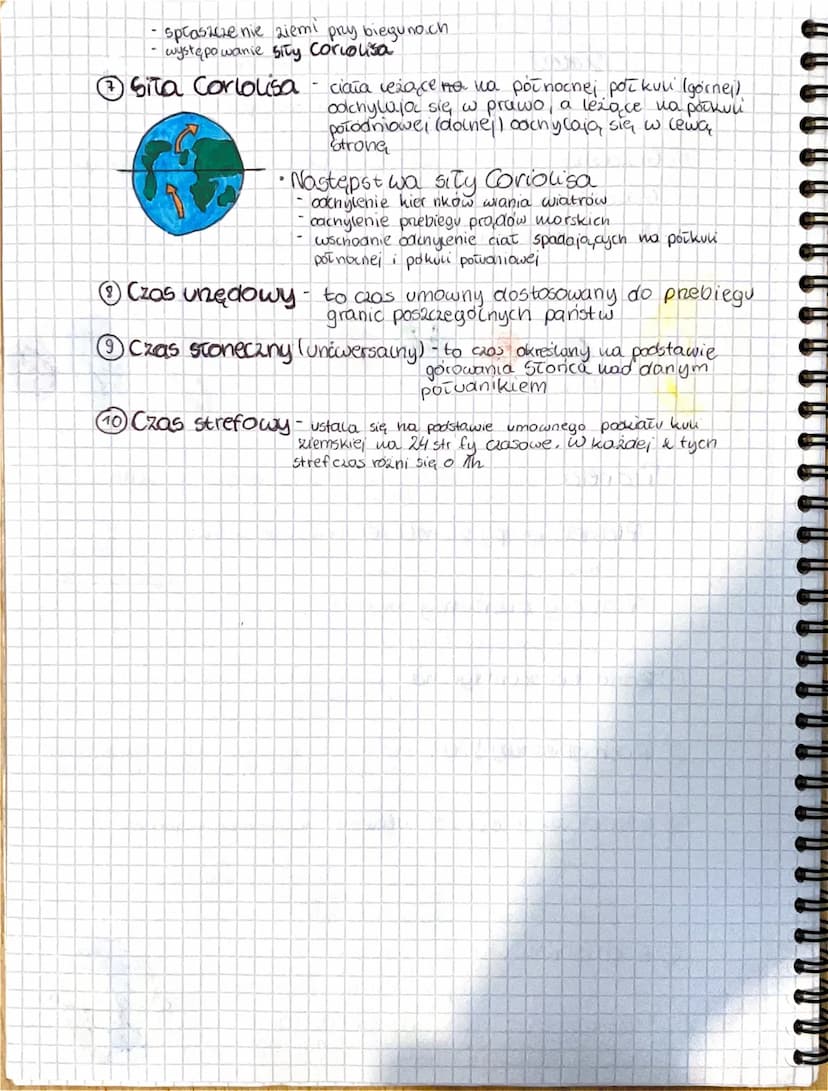 - spłaszczenie ziemi przy biegunach
- występowanie siły Coriolisa
⑦ Siła Coriolisa - ciała leżące na północnej półkuli (górnej)
odchylają się w prawo, a leżące na półkuli
południowej (dolnej) odchylają się w lewą
stronę
• Następstwa siły Coriolisa
- odchylenie kier nków wiania wiatrów
- odchylenie przebiegu prądów morskich
- wschodnie odchylenie ciał spadających na półkuli
północnej i półkuli południowej
⑧ Czas urzędowy - to czas umowny dostosowany do przebiegu
granic poszczególnych państw
⑨ Czas słoneczny (uniwersalny) - to czas określany na podstawie
górowania Słońca nad danym
południkiem
⑩ Czas strefowy - ustala się na podstawie umownego podziału kuli
ziemskiej na 24 str fy czasowe. W każdej z tych
stref czas różni się o 1h